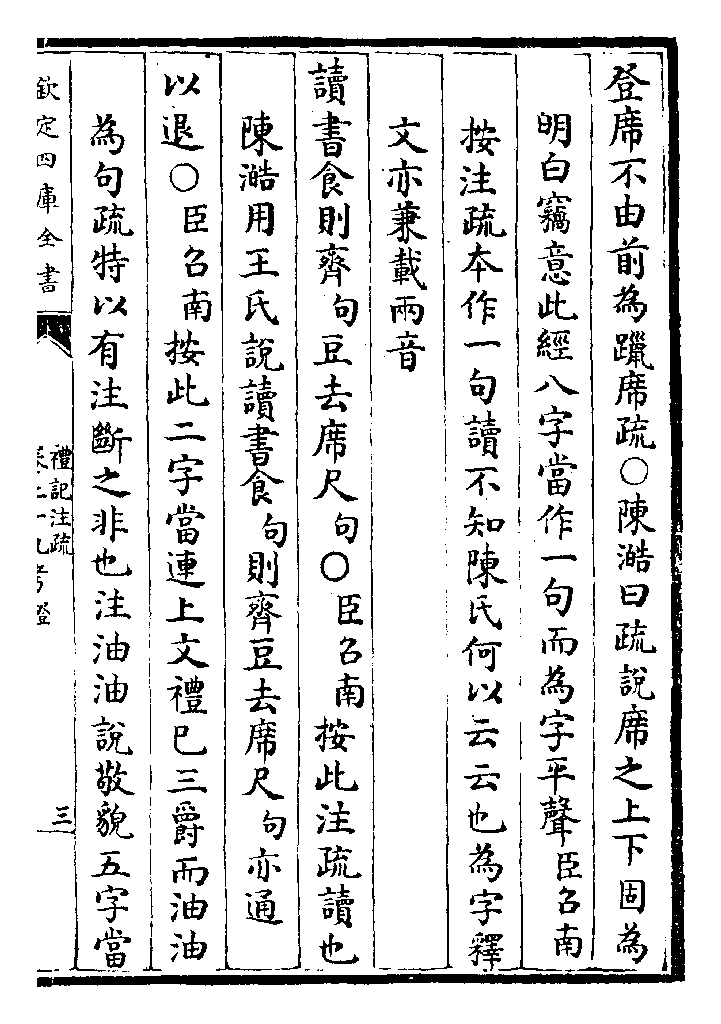 登席不由前為躐席疏○陳澔曰疏說席之上下固為
明白竊意此經八字當作一句而為字平聲臣召南
按注疏本作一句讀不知陳氏何以云云也為字釋
文亦兼載兩音
讀書食則齊句豆去席尺句○臣召南按此注疏讀也
陳澔用王氏說讀書食句則齊豆去席尺句亦通
以退○臣召南按此二字當連上文禮已三爵而油油
為句疏特以有注斷之非也注油油說敬貌五字當
欽定四庫全書
禮記注疏
卷二十九考證
三